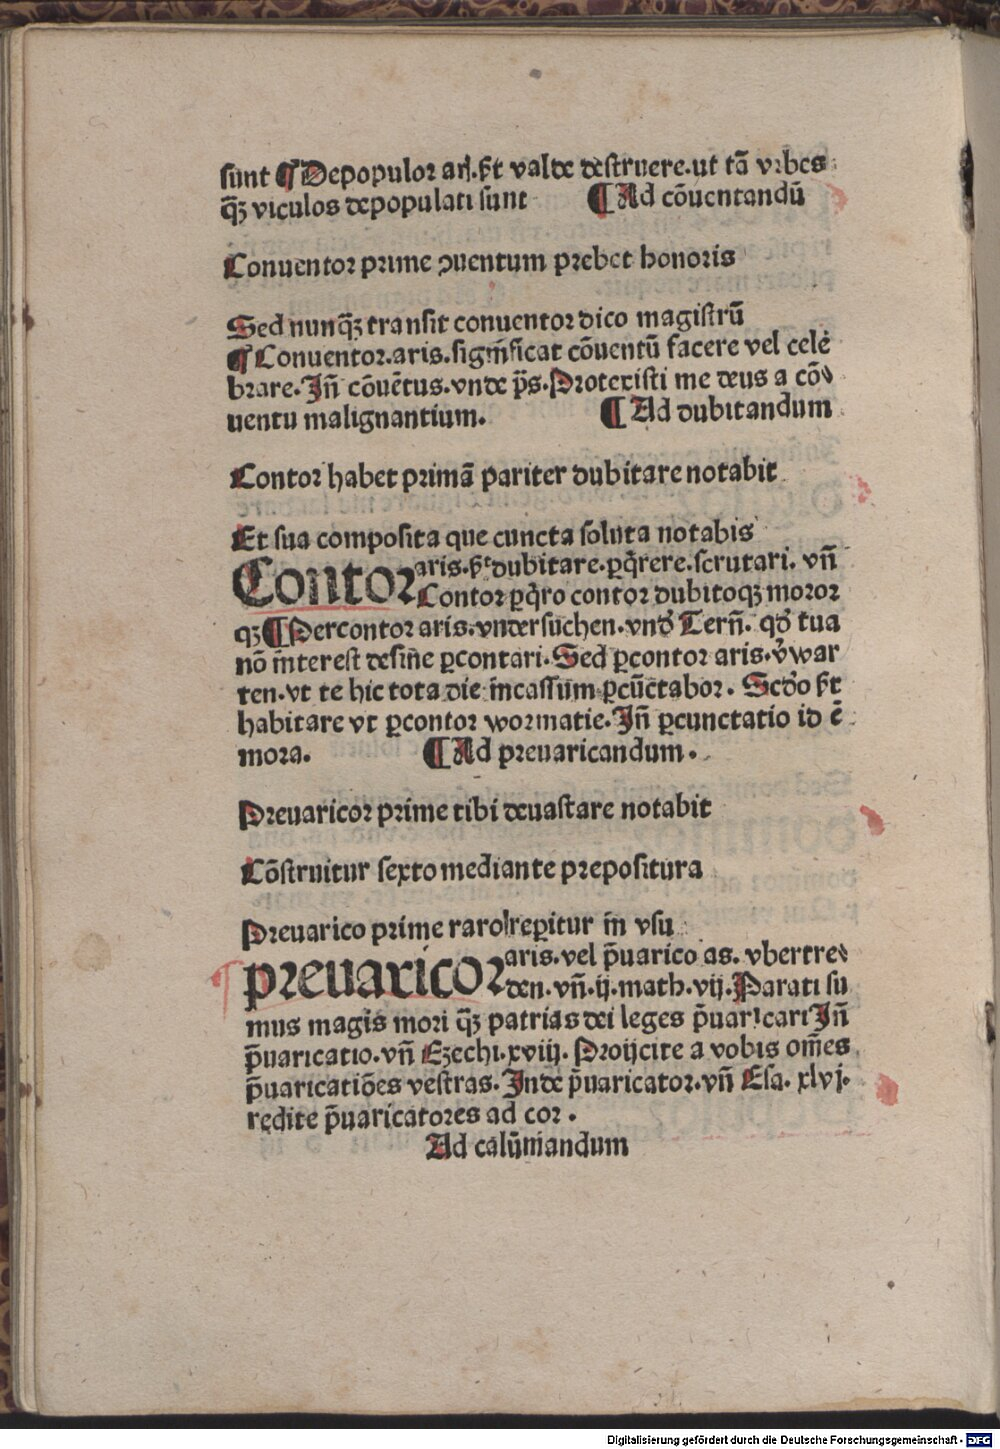 sunt ¶ Depopulor arꝭ. ſt̄ valde deſtruere. ut tā vrbes
qȝ viculos depopulati ſunt ¶ Ad cōuentandū
Conuentor prime ꝯuentum prebet honoris
Sed nunqȝ tranſit conuentor dico magiſtrū
¶ Conuentor. aris. ſignificat cōuentū facere vel cele
brare. Iñ cōuētus. vnde p̄s. Protexiſti me deus a cō
uentu malignantium. ¶ Ad dubitandum
Contor habet primā pariter dubitare notabit
Et ſua compoſita que cuncta ſoluta notabis
Contor aris. ſt̄ dubitare. ꝑqrere. ſcrutari. vñ
Contor ꝑqro contor dubitoqȝ moror
qȝ ¶ Percontor aris. vnderſuchen. vnd̄ Tern̄. qd̄ tua
nō intereſt deſine ꝑcontari. Sed ꝑcontor aris. v̄war
ten. vt te hic tota die incaſſum ꝑcūctabor. Scd̄o ſt̄
habitare vt ꝑcontor wormatie. Iñ ꝑcunctatio id ē
mora. ¶ Ad preuaricandum.
Preuaricor prime tibi deuaſtare notabit
Cōſtruitur ſexto mediante prepoſitura
Preuarico prime raro reꝑitur in vſu
preuaricor aris. vel p̄uarico as. vbertre
den. vñ. ij. math. vij. Parati ſu
mus magis mori qȝ patrias dei leges p̄uaricari Iñ
p̄uaricatio. vñ Ezechi. xviij. Proijcite a vobis om̄es
p̄uaricatiōes veſtras. Inde p̄uaricator. vñ Eſa. xlvj.
redite p̄uaricatores ad cor.
Ad calūniandum
Digitalisierung gefördert durch die Deutsche Forschungsgemeinschaft - DFG